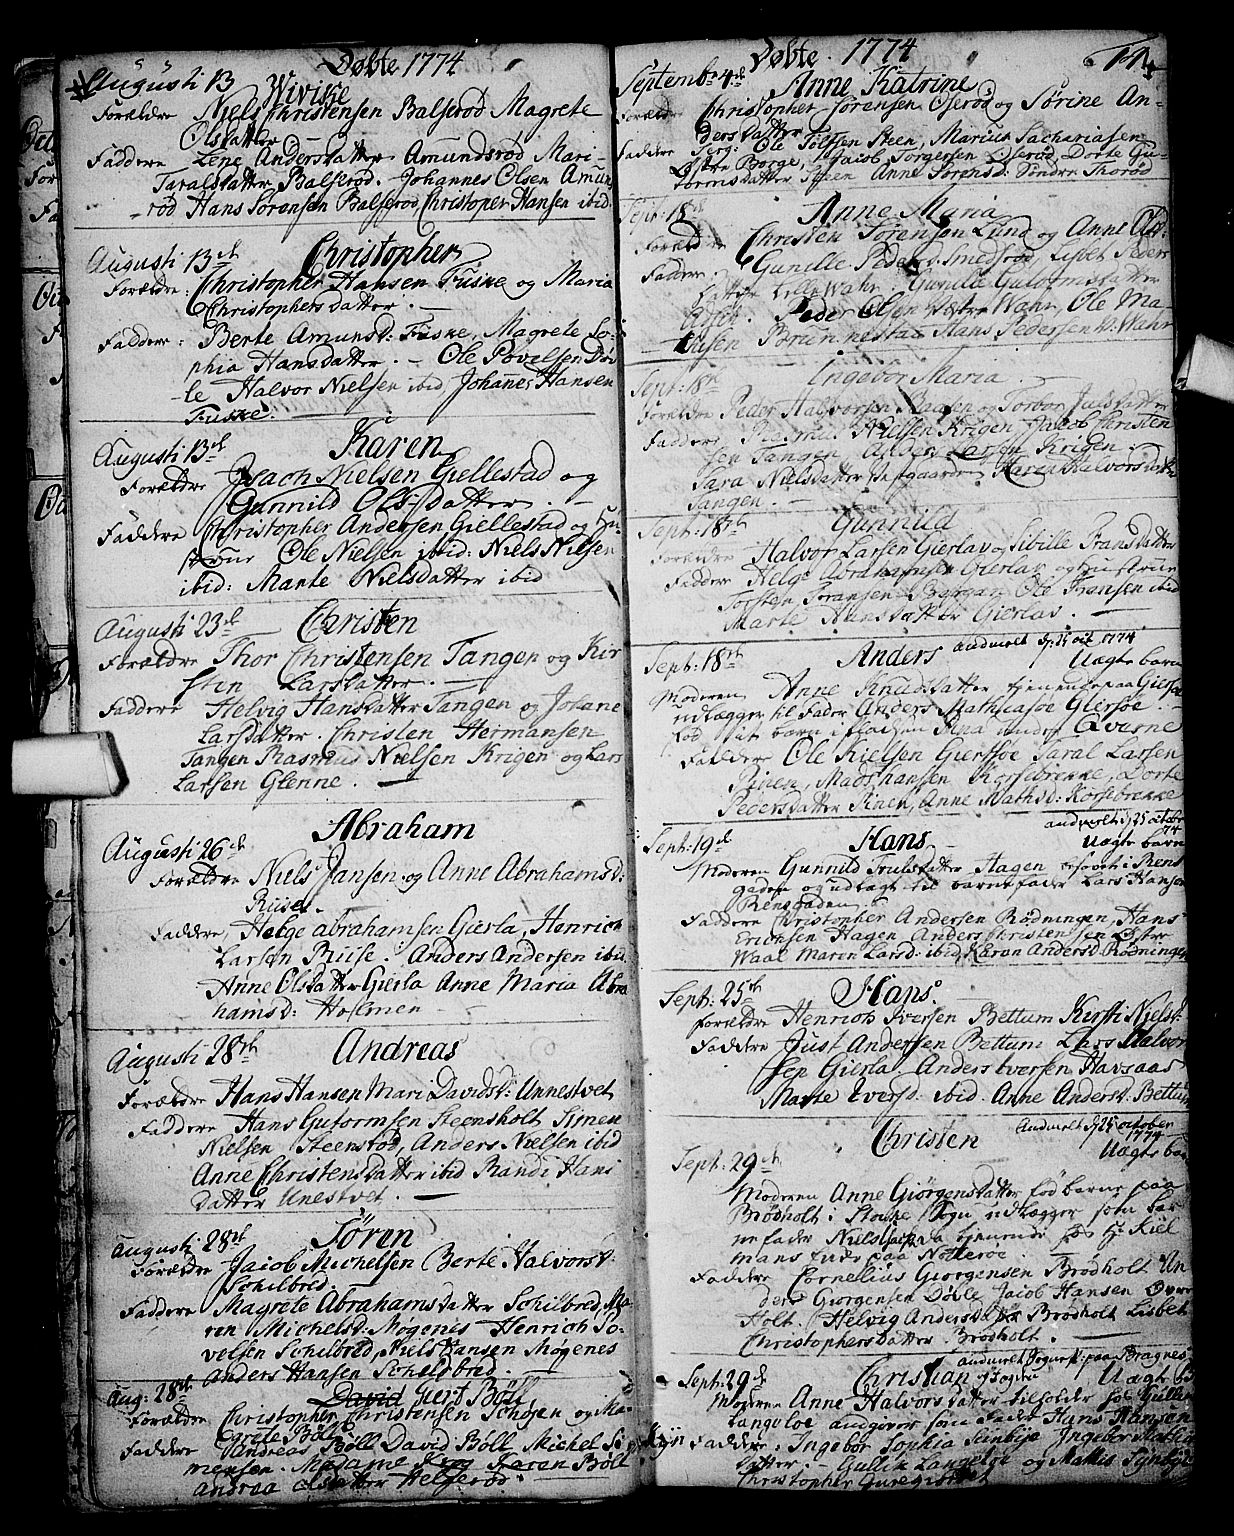 Døbte 1774
Augusti 13 Wivike
Forældre Niels Christensen Balserød Magrete
Olsdatter
Faddere Lene Andersdatter Amundsrød Mari-
Taralsdatter Balserød. Johannes Olsen Amuns
rød Hans Sørensen Balserød, Christoper Hansen ibid
Augusti 13de Christopher
Forældre: Christopher Hansen Fuske og Maria
Christophersdatter.
Faddere: Berte Amunsd: Fuske, Magrete So-
phia Hansdatter. Ole Povelsen Døv-
le Halvor Nielsen ibid, Johannes Hansen
Fuske.
Augusti 13de Karen
Forældre Isach Nielsen Gellestad og
Gunnild Ols-datter.
Faddere Christopher Andersen Giellestad og Hu-
strue Ole Nielsen ibid: Niels Nilsen
ibid: Marte Nielsdatter ibid
Augusti 23de Christen
Forældre Thor Christensen Tangen og Kir
sten Larsdatter.
Faddere Helvig Hansdatter Tangen og Johane
Larsdatter. Christen Hermansen
Tangen Rasmus Nielsen Krigen og Lars
Larsen Glenne.
Augusti 26de Abraham
Forældre Niels Jansen og Anne Abrahamsd:
Ruse.
Faddere, Helge abrahamsen Gierla, Henrich
Larsen Buise. Anders Andersen ibid
Anne Olsdatter Gierla Anne Maria Abra
hamsd: Holmen
Augusti 28de Andreas
Forældre Hans Hansen Mari Davidsd: Unnestvet
Faddere Hans Gutormsen Steensholt Simen
Nielsen Steensrød, Anders Nielsen ibid
Anne Christensdatter ibid Randi Hans
datter Unestvet.
Augusti 28de Søren
Forældre Jacob Michelsen Berte Halvorsd:
Schilbred.
Faddere Magrete Abrahamsdatter Schilbred, Ma
ren Michelsd: Møgenes Henrich So-
velsen Schilbred, Niels Hansen Møgenes
Anders Hansen Schelsbred.
Aug: 28de David Giert Böll
Forældre Christopher Christensen Schosen og Ma-
grete Böll
Faddere Andreas Böll David Böll Michel Si
mensen. Madame Karen Böll
Andrea Olsdatter Helserød
Døbte 1774
Septembr 4de Anne Katrine
Forældre Christopher Sørensen Oserød og Sørine An-
dersdatter
Faddere Jerg: Ole Tolfsen Steen, Marius Sachariasen
Østre Borge, Jacob Jørgensen Oserød Dorte Gu-
tormsdatter Steen Anne Sørensd: Søndre Thorød
Sept: 18de Anne Maria
Forældre Christen Sørensen Lund og Anne
Faddere Gunille Pedersd: Smedsrød, Lisbet Peders
datter Lille Wahr. Gunille Gutormsdatter
Peder Olsen Westre Wahr, Ole Ma-
Brunnestad Hans Pedersen W: Wahr
Sept: 18de Ingebor Maria
Forældre Peder Halvorsen Baasen og Torbor Julsdatter
Faddere Rasmus Nielsen Krigen Jacob Christen
sen Tangen, Anders Larsen Krigen
Sara Nielsdatter Præstgaarden Karen Halvorsdatter
Tangen.
Sept: 18de Gunnild
Forældre Halvor Larsen Gierlav og Sibille Fransdatter
Faddere Helge Abrahamsen Gierlav og Hustrue
Torsten Joransen Bergan Ole Fransen ibid
Marte Hansdatter Gierlav.
Sept: 18de Anders anmælt d: 25 oct. 1774
Uægte barn
Moderen Anne Knudsdatter tjenende paa Giersøe
udlægger til Fader Anders Mathiasøe Giersøe
fød sit barn i pladsen Mæa under Qverne
Faddere Ole Nielsen Giersøe Taral Larsen
Pinen, Mads hansen Korsebrekke, Dorte
Pedersdatter Pinen, Anne Mathisd: Korsebrekke
Sept: 19de Hans anmælt d: 25 october 74
Uægte barn
Moderen Gunnild Trulsdatter Hagen besovet i Rens
gaden og udlagt til barnefader Lars Hansen
Rensgaden
Faddere Christopher Andersen Rødningen, Hans
Erichsen Hagen Anders Christensen Øster
Waal Maren Larsd: ibid, Karen Andersd Rødningen
Sept: 25de Hans.
Forældre Henrich Iversen Bettum Kirsti Nielsd:
Faddere Just Andersen Bettum Lars Halvor
sen Gierla. Anders Iversen Havsaas
Marte Iversd. ibid. Anne Andersd. Bettum
Sept: 29de Christen Anmælt d. 25 october 1774
Uægte barn
Moderen Anne Giørgensdatter fød barne paa
Brødholt i Stocke Sogn udlægger som bar
nefader Niels tjenende hos Hr. Kiel
mans Enke paa Nøtterøe.
Faddere Cornelius Giørgensen Brødholt An
ders Giørgensen Døble Jacob Hansen Øvre
Holt. Helvig Andersdatter Brødholt Lisbet
Christophersdatter Brødholt.
Sept: 29de Christian anmælt Sogne p: paa Bragnes
Uægte b
Moderen Anne Halvorsdatter tilholder hos Gullic
Langeloe angiver som Fader Hans Hansen
Faddere: Ingebor Sophia Sunbye Ingebor Mathis
datter. Gullik Langeløe og Mathis Synbye
Christopher